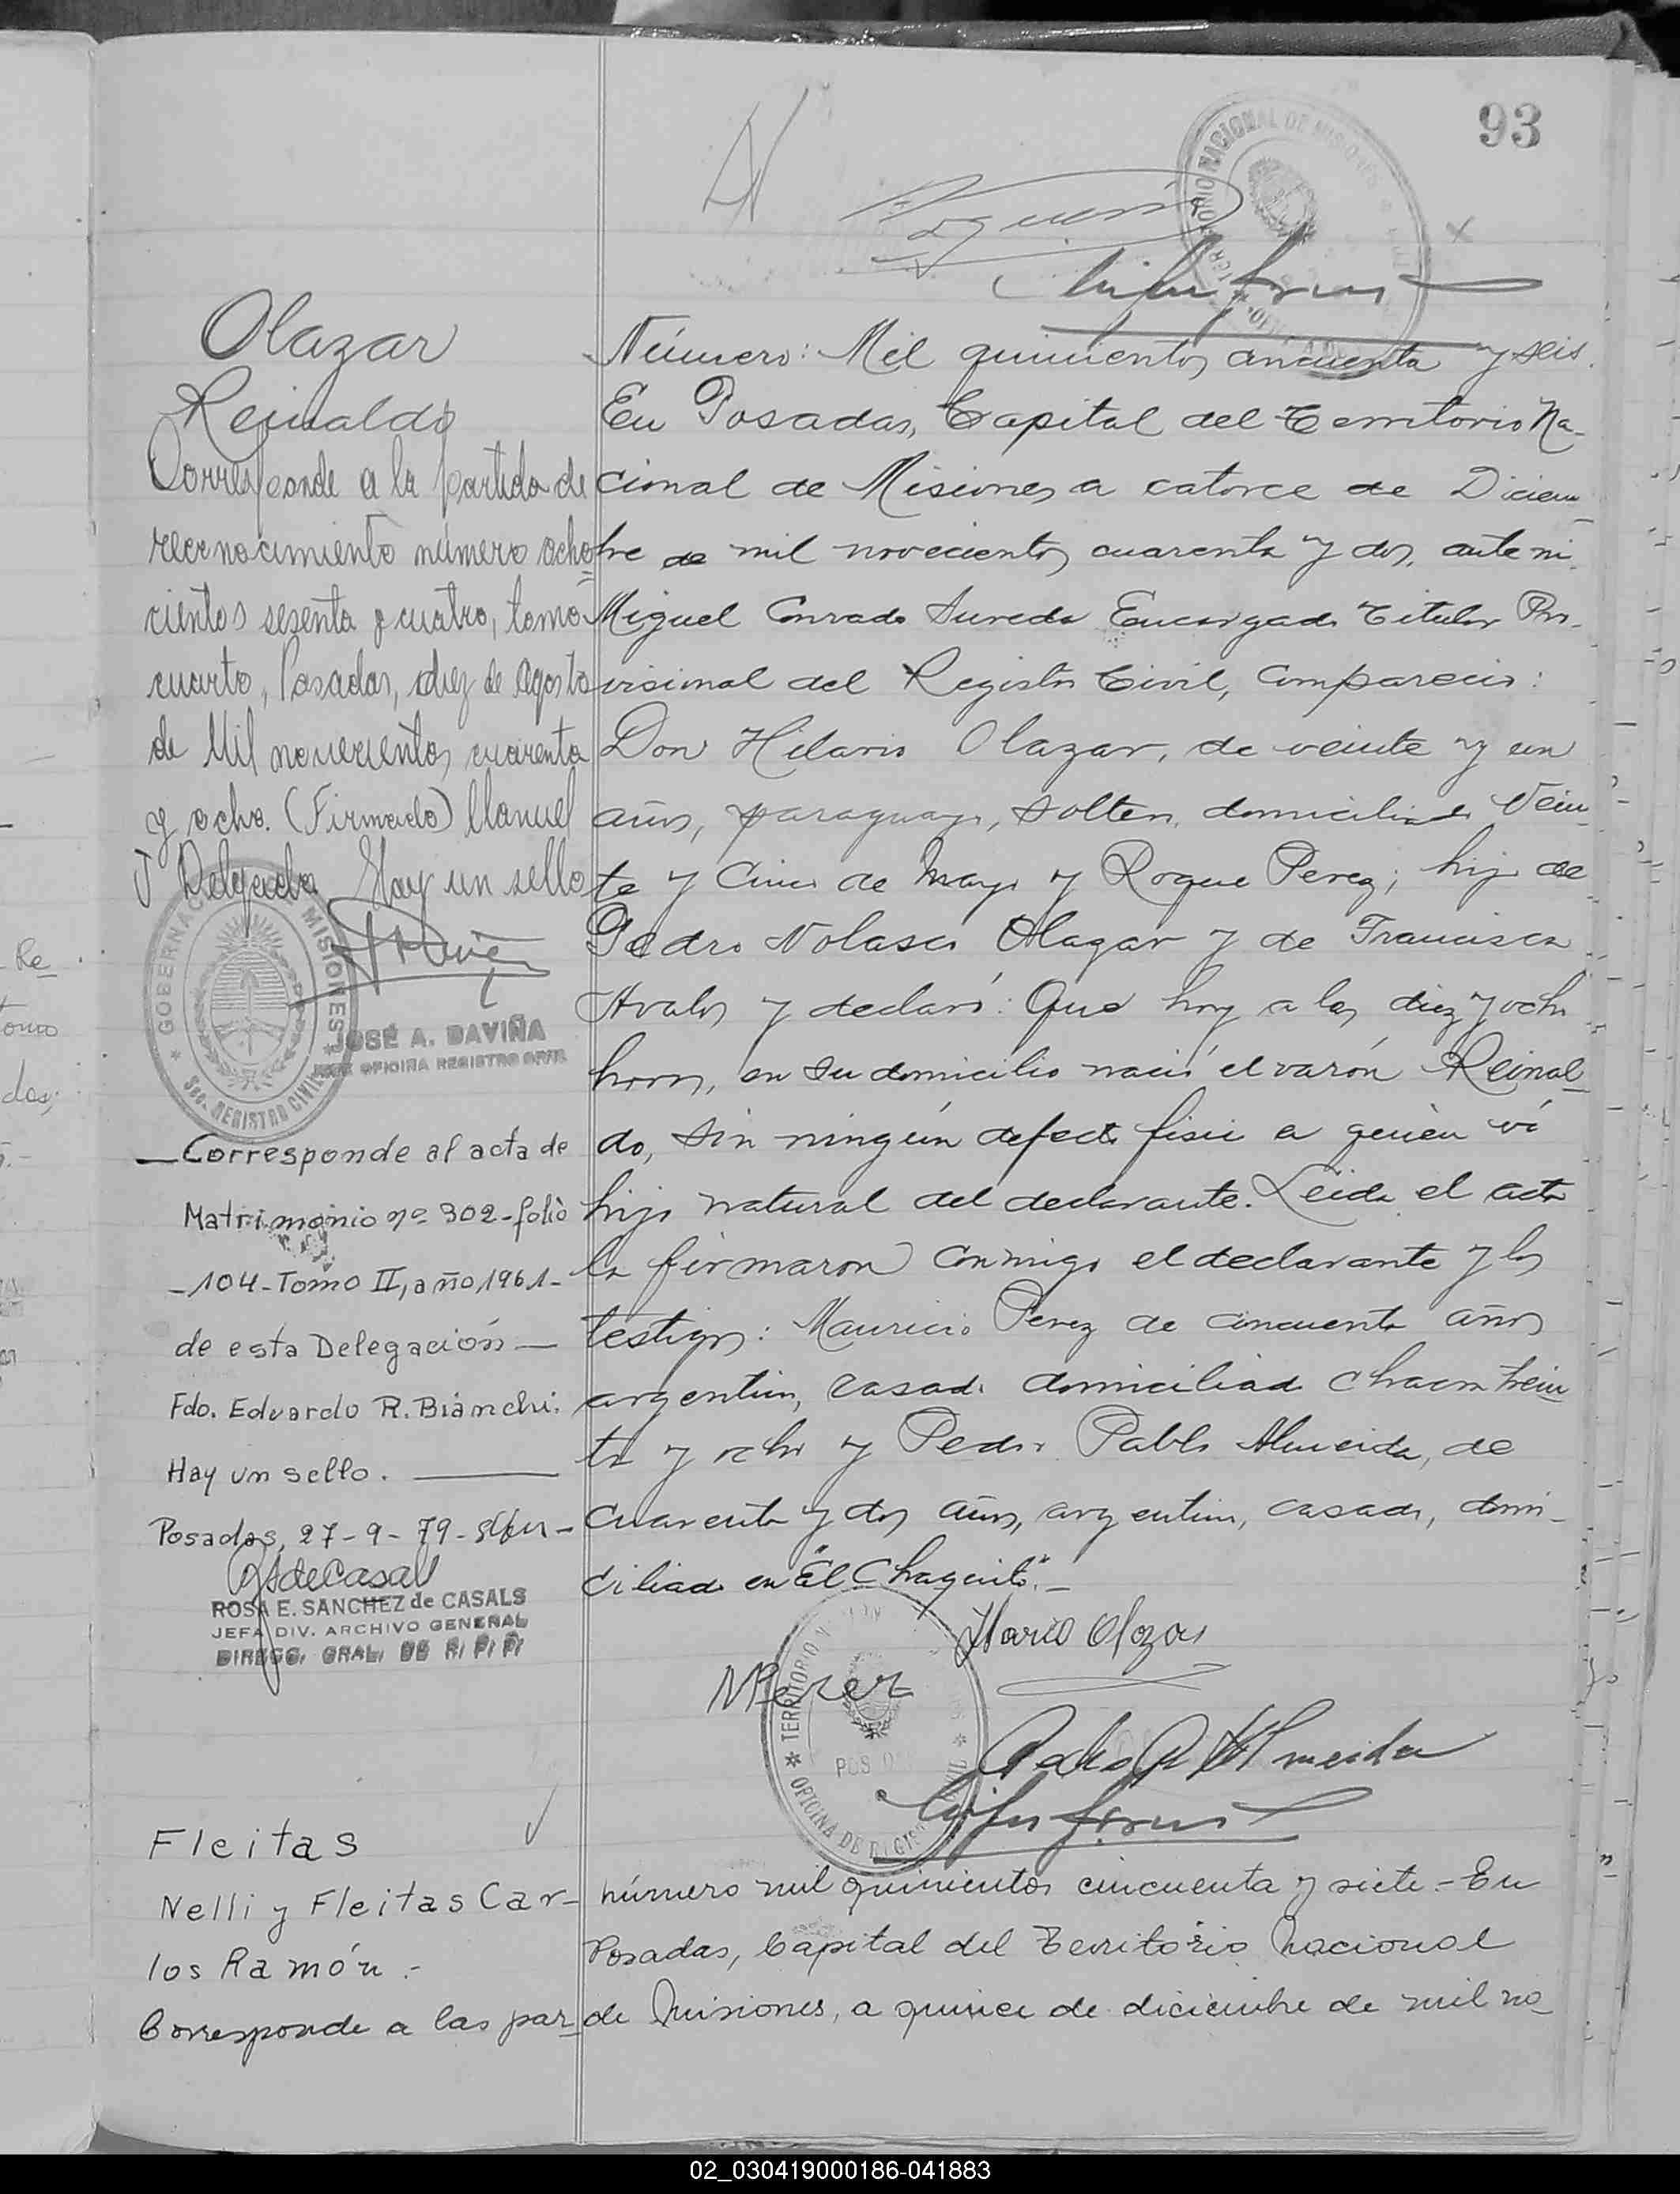 93
TERRITORIO NACIONAL DE MISIONES
Olazar
Reinaldo
Corresponde a la partida de
reconocimiento número ocho=
cientos sesenta y cuatro, tomo
cuarto, Posadas, diez de Agosto
de Mil novecientos cuarenta
y ocho. (Firmado) Manuel
J Delgado. Hay un sello
GOBERNACION MISIONES
Sec. REGISTRO CIVIL
JOSÉ A. DAVIÑA
JEFE OFICINA REGISTRO CIVIL
Corresponde al acta de
Matrimonio nº 302-folio
-104-Tomo II, año 1961-
de esta Delegación—
Fdo. Eduardo R. Bianchi.
Hay un sello.
Posadas, 27-9-79-
ROSA E. SANCHEZ de CASALS
JEFA DIV. ARCHIVO GENERAL
DIRECC. GRAL. DE R. P. P.
Número: Mil quinientos cincuenta y seis.
En Posadas, Capital del Territorio Na-
cional de Misiones a catorce de Diciem-
bre de mil novecientos cuarenta y dos, ante mi
Miguel Conrado Sureda Encargado Titular Pro-
visional del Registro Civil, compareció:
Don Hilario Olazar, de veinte y un
años, paraguayo, soltero, domiciliado Vein-
te y Cinco de Mayo y Roque Perez; hijo de
Pedro Nolasco Olazar y de Francisca
Avalos y declaró: Que hoy a las diez y ocho
horas, en su domicilio nació el varón Reinal-
do, sin ningún defecto fisico a quién vi
hijo natural del declarante. Leida el acta
la firmaron conmigo el declarante y los
testigos: Mauricio Perez de cincuenta años
argentino, casado domiciliado Chacra trein
ta y ocho y Pedro Pablo Almeida, de
cuarenta y dos años, argentino, casado, domi-
ciliado en "El Chaquito".-
Ilario Olazar
MPerez
Pedro P Almeida
TERRITORIO
OFICINA DE REGISTRO CIVIL
Fleitas
Nelli y Fleitas Car-
los Ramón.-
Corresponde a las par-
número mil quinientos cincuenta y siete.- En
Posadas, Capital del Territorio Nacional
de Misiones, a quince de diciembre de mil no-
02_030419000186-041883